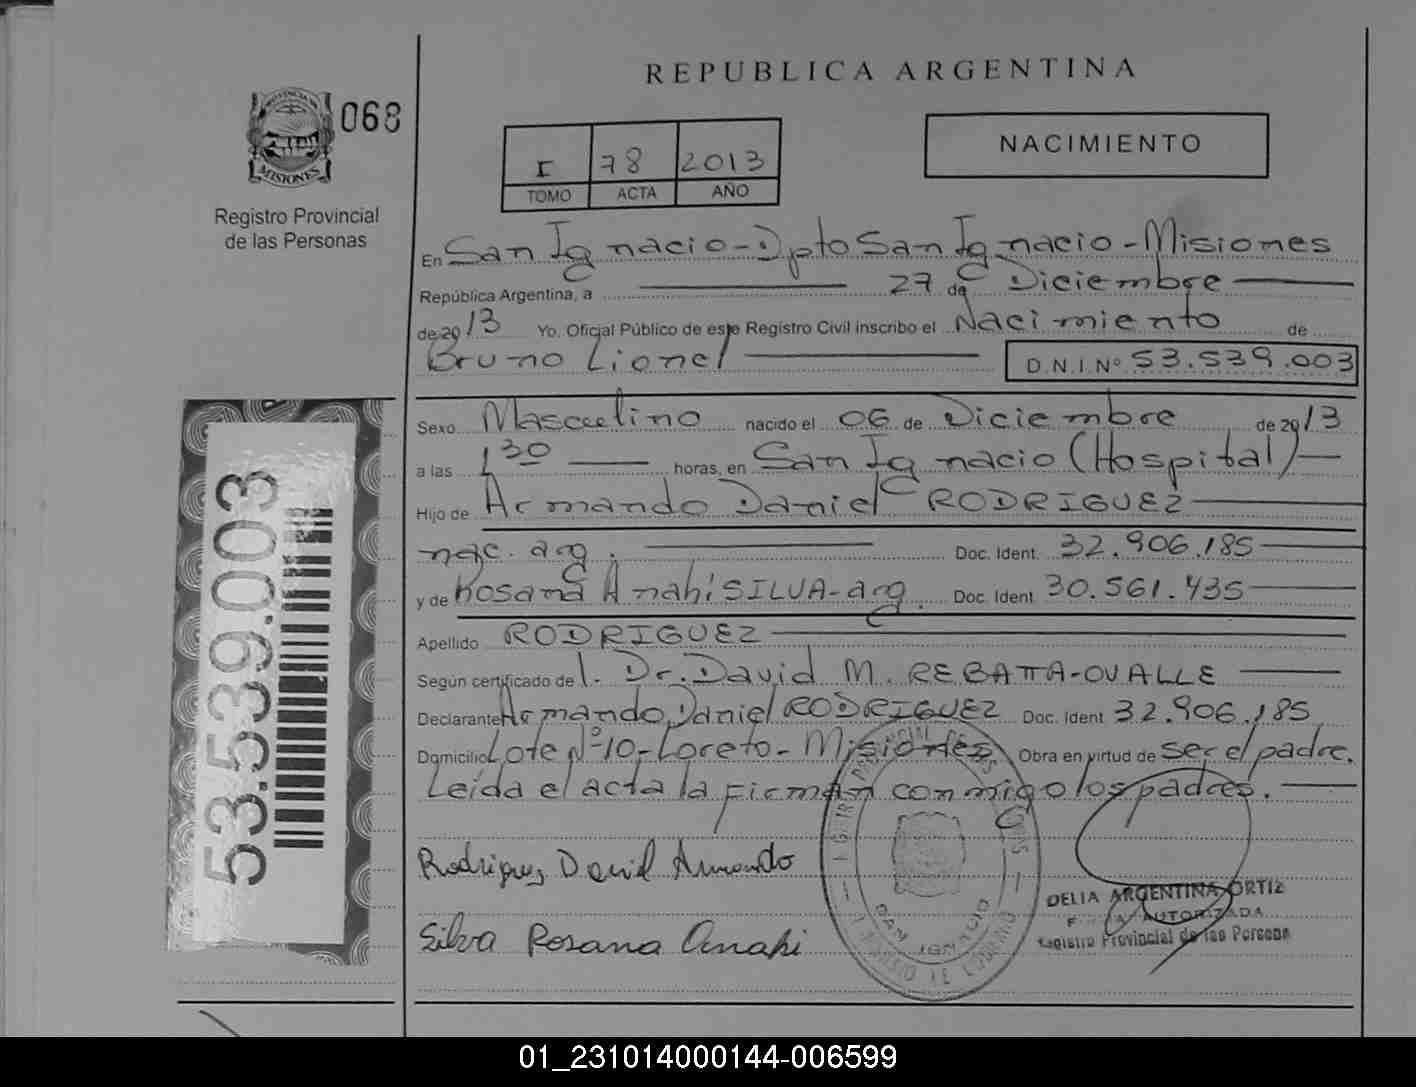 REPUBLICA ARGENTINA
PROVINCIA DE
MISIONES
068
Registro Provincial
de las Personas
I 78 2013
TOMO ACTA AÑO
NACIMIENTO
En San Ignacio - Dpto San Ignacio - Misiones
República Argentina, a 27 de Diciembre
de 2013 Yo. Oficial Público de este Registro Civil inscribo el Nacimiento de
Bruno Lionel D.N.I. Nº 53.539.003
Sexo Masculino nacido el 06 de Diciembre de 2013
a las 1 30 horas, en San Ignacio (Hospital)
Hijo de Armando Daniel RODRIGUEZ
nac. arg. Doc. Ident. 32.906.185
y de Rosana Anahi SILVA - arg. Doc. Ident 30.561.435
Apellido RODRIGUEZ
Según certificado de l. Dr. David M. REBATTA-OVALLE
Declarante Armando Daniel RODRIGUEZ Doc. Ident 32.906.185
Domicilio Lote Nº 10 - Loreto - Misiones Obra en virtud de ser el padre.
Leída el acta la firman conmigo los padres.
Rodriguez Daniel Armando
Silva Rosana Anahi
SAN IGNACIO
DELIA ARGENTINA ORTIZ
AUTORIZADA
Registro Provincial de las Persona
53.539.003
01_231014000144-006599